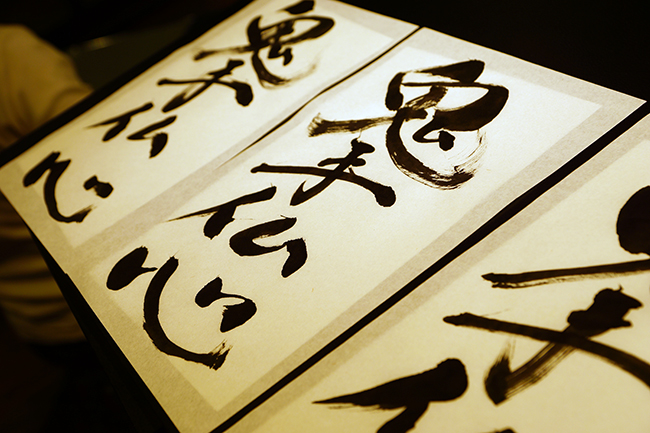 鬼手仏心
鬼手仏心